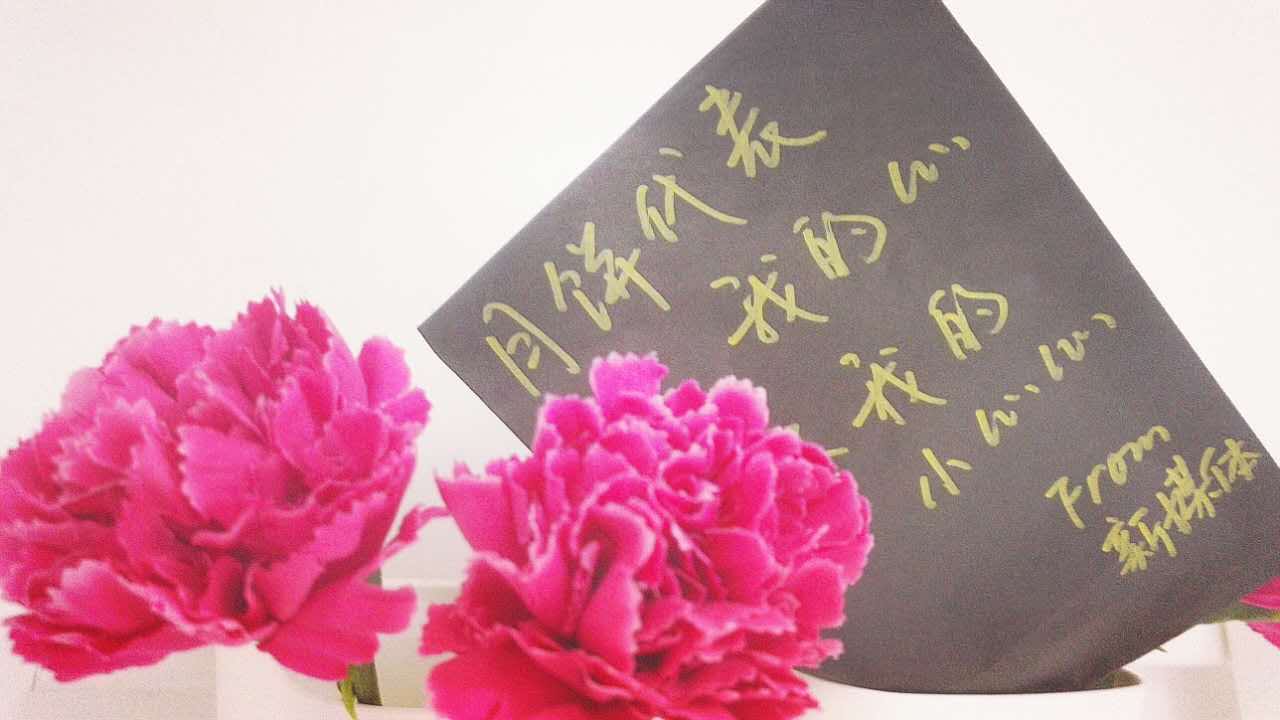 月饼代表
我的心
我的
小心心
From
新媒体